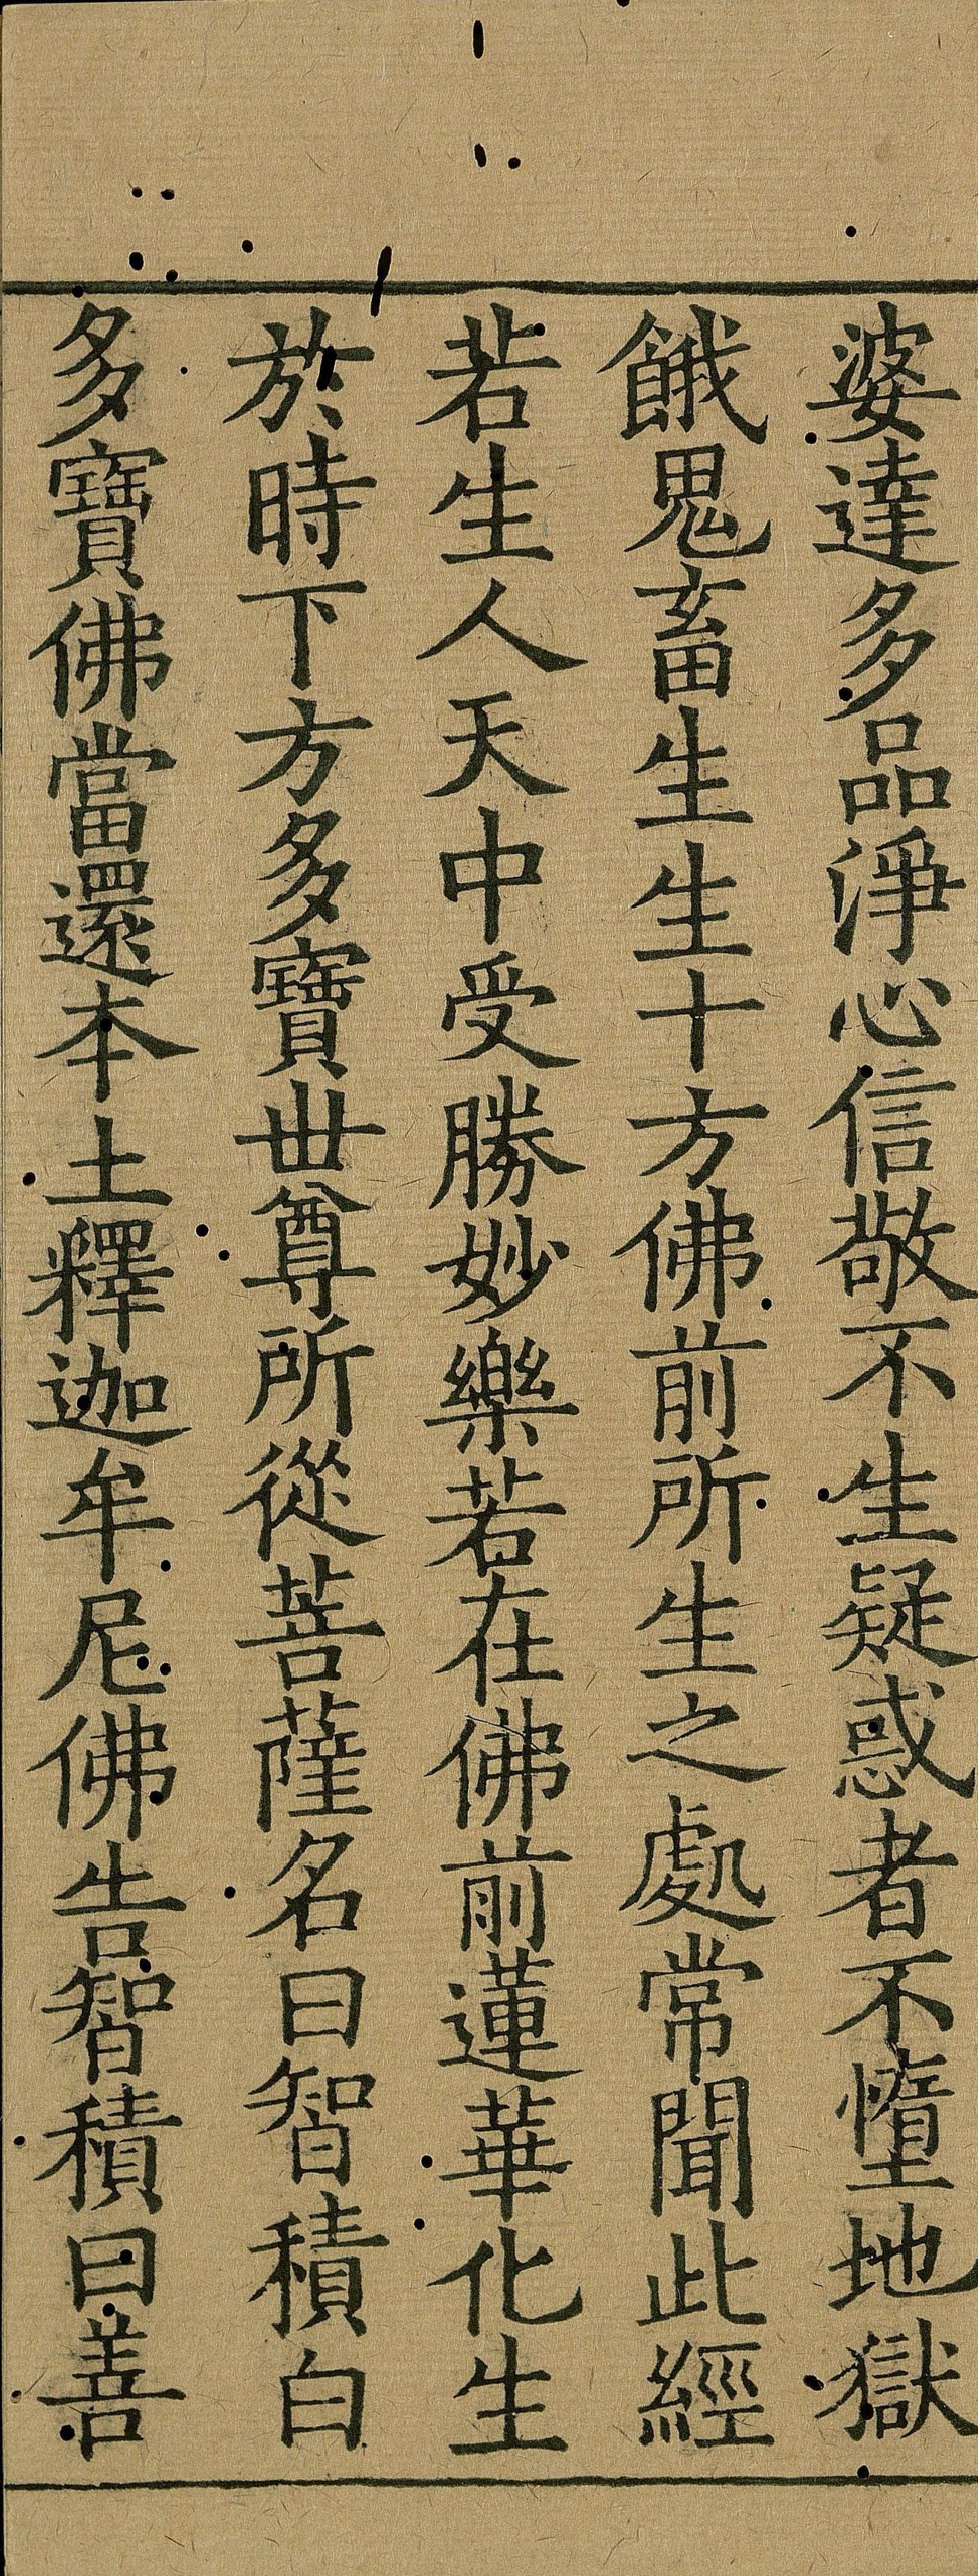 婆達多品淨心信敬不生疑惑者不墮地獄
餓鬼畜生生十方佛前所生之處常聞此經
若生人天中受勝妙樂若在佛前蓮華化生
於時下方多寶世尊所從菩薩名曰智積白
多寶佛當還本土釋迦牟尼佛告智積曰善